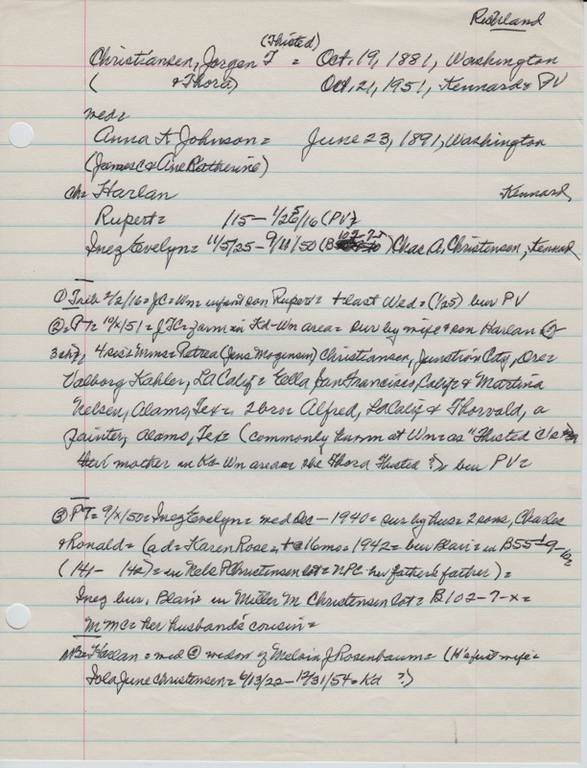 Richland
(Thisted)
Christiansen, Jorgen T = Oct. 19, 1881, Washington
( & Thora) Oct. 21, 1951, Kennard = PV
med =
Anna K Johnson = June 23, 1891, Washington
(James C & Ane Catherine)
ch = Harlan Kennard
Rupert = /15 - 1/25/16 (PV)
Inez Evelyn = 11/5/25 - 9/11/50 (B 102-7-5) Chas. A. Christensen, Kennard
① Trib 2/2/16 = JC = Wn = infant son Rupert = + last Wed = (1/25) bur PV
② PT = /X/51 = JTC = farm in Kd-Wn area = sur by wife & son Harlan @
3 4 sis = Mrs = Petrea (Jens Mogensen) Christiansen, Junction City, Ore =
Valborg Kahler, LA Calif = Ella San Francisco, Calif & Martina
Nelsen, Alamo, Tex = 2 bro = Alfred, LA Calif & Thorvald, a
painter, Alamo, Tex = (commonly known at Wn = as "Thisted
their mother in Kd-Wn area as the Thora Thisted ?) = bur PV =
③ PT = 9/X/50 = Inez Evelyn = med Des - 1940 = sur by hus = 2 sons, Charles
& Ronald = (a d = Karen Rose, + @ 16 mo = 1942 = bur Blair = in B55
(141 - 142) = in Nels P Christensen lot = NPC = her father's father) =
Inez bur. Blair in Miller M Christensen lot = B 102-7-x =
MMC = her husband's cousin =
NB = Harlan = med @ widow of Melvin J Rosenbaum = (H's first wife =
Iola June Christensen = 6/13/22 - 12/31/54 = Kd ?)